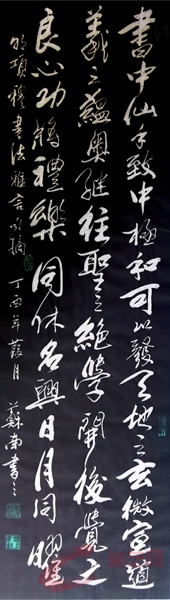 書中仙手致中極和可以發天地之玄微宣道
義之蘊奧繼往聖之絕學開後覺之
良心功將禮樂同休名與日月同曜
明項穆書法雅言句摘
丁酉年菊月 蘇南書之